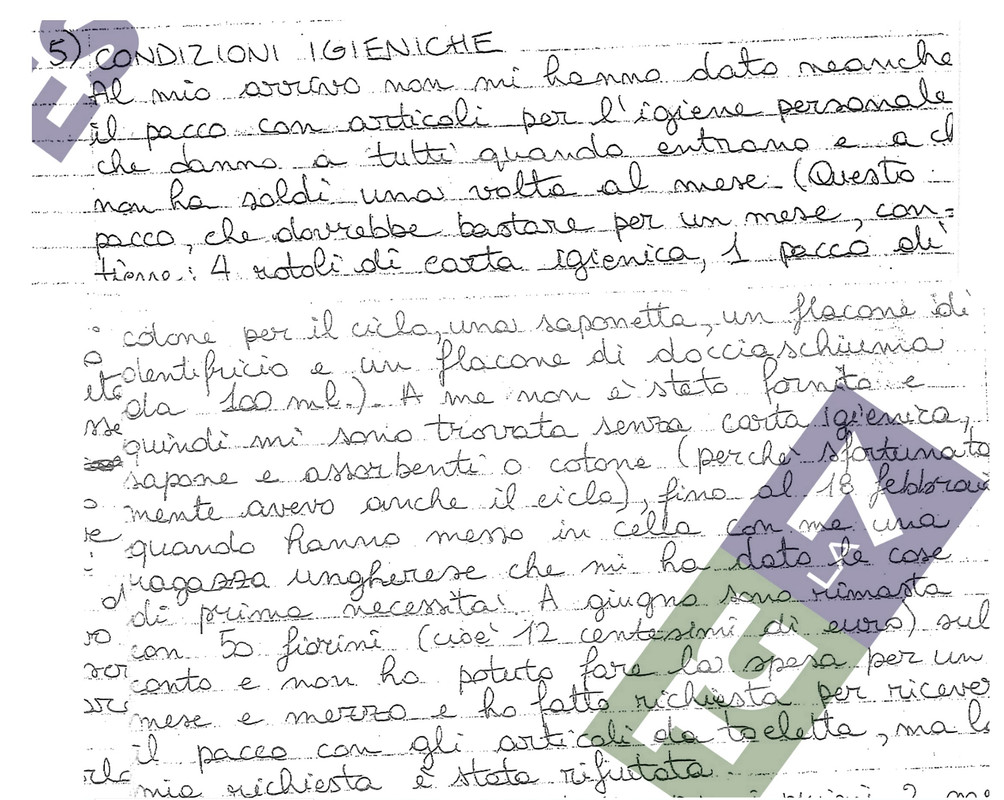 5) CONDIZIONI IGIENICHE
Al mio arrivo non mi hanno dato neanche
il pacco con articoli per l'igiene personale
che danno a tutti quando entrano e a ch
non ha soldi una volta al mese. (Questo
pacco, che dovrebbe bastare per un mese, con=
tiene: 4 rotoli di carta igienica, 1 pacco di
cotone per il ciclo, una saponetta, un flacone di
dentifricio e un flacone di docciaschiuma
da 100 ml.). A me non è stato fornito e
quindi mi sono trovata senza carta igienica,
sapone e assorbenti o cotone (perché sfortunata
mente avevo anche il ciclo), fino al 18 febbraio
quando hanno messo in cella con me una
ragazza ungherese che mi ha dato le cose
di prima necessità. A giugno sono rimasta
con 50 fiorini (cioè 12 centesimi di euro) sul
conto e non ho potuto fare la spesa per un
mese e mezzo e ho fatto richiesta per ricever
il pacco con gli articoli da toeletta, ma la
mia richiesta è stata rifiutata.
TG LA7